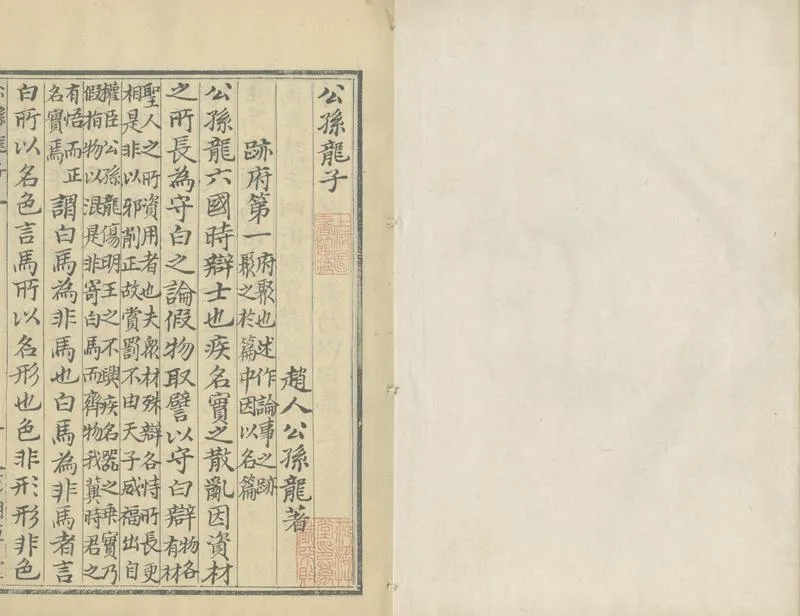 公孫龍子
趙人公孫龍著
跡府第一
府聚也述作論事之跡
聚之於篇中因以名篇
公孫龍六國時辯士也疾名實之散亂因資材
之所長為守白之論假物取譬以守白辯
物各
有材
聖人之所資用者也夫衆材殊辯各恃所長更
相是非以邪削正故賞罰不由天子威福出自
權臣公孫龍傷明王之不興疾名器之乖實乃
假指物以混是非寄白馬而齊物我冀時君之
有悟而正
名實焉
謂白馬為非馬也白馬為非馬者言
白所以名色言馬所以名形也色非形形非色